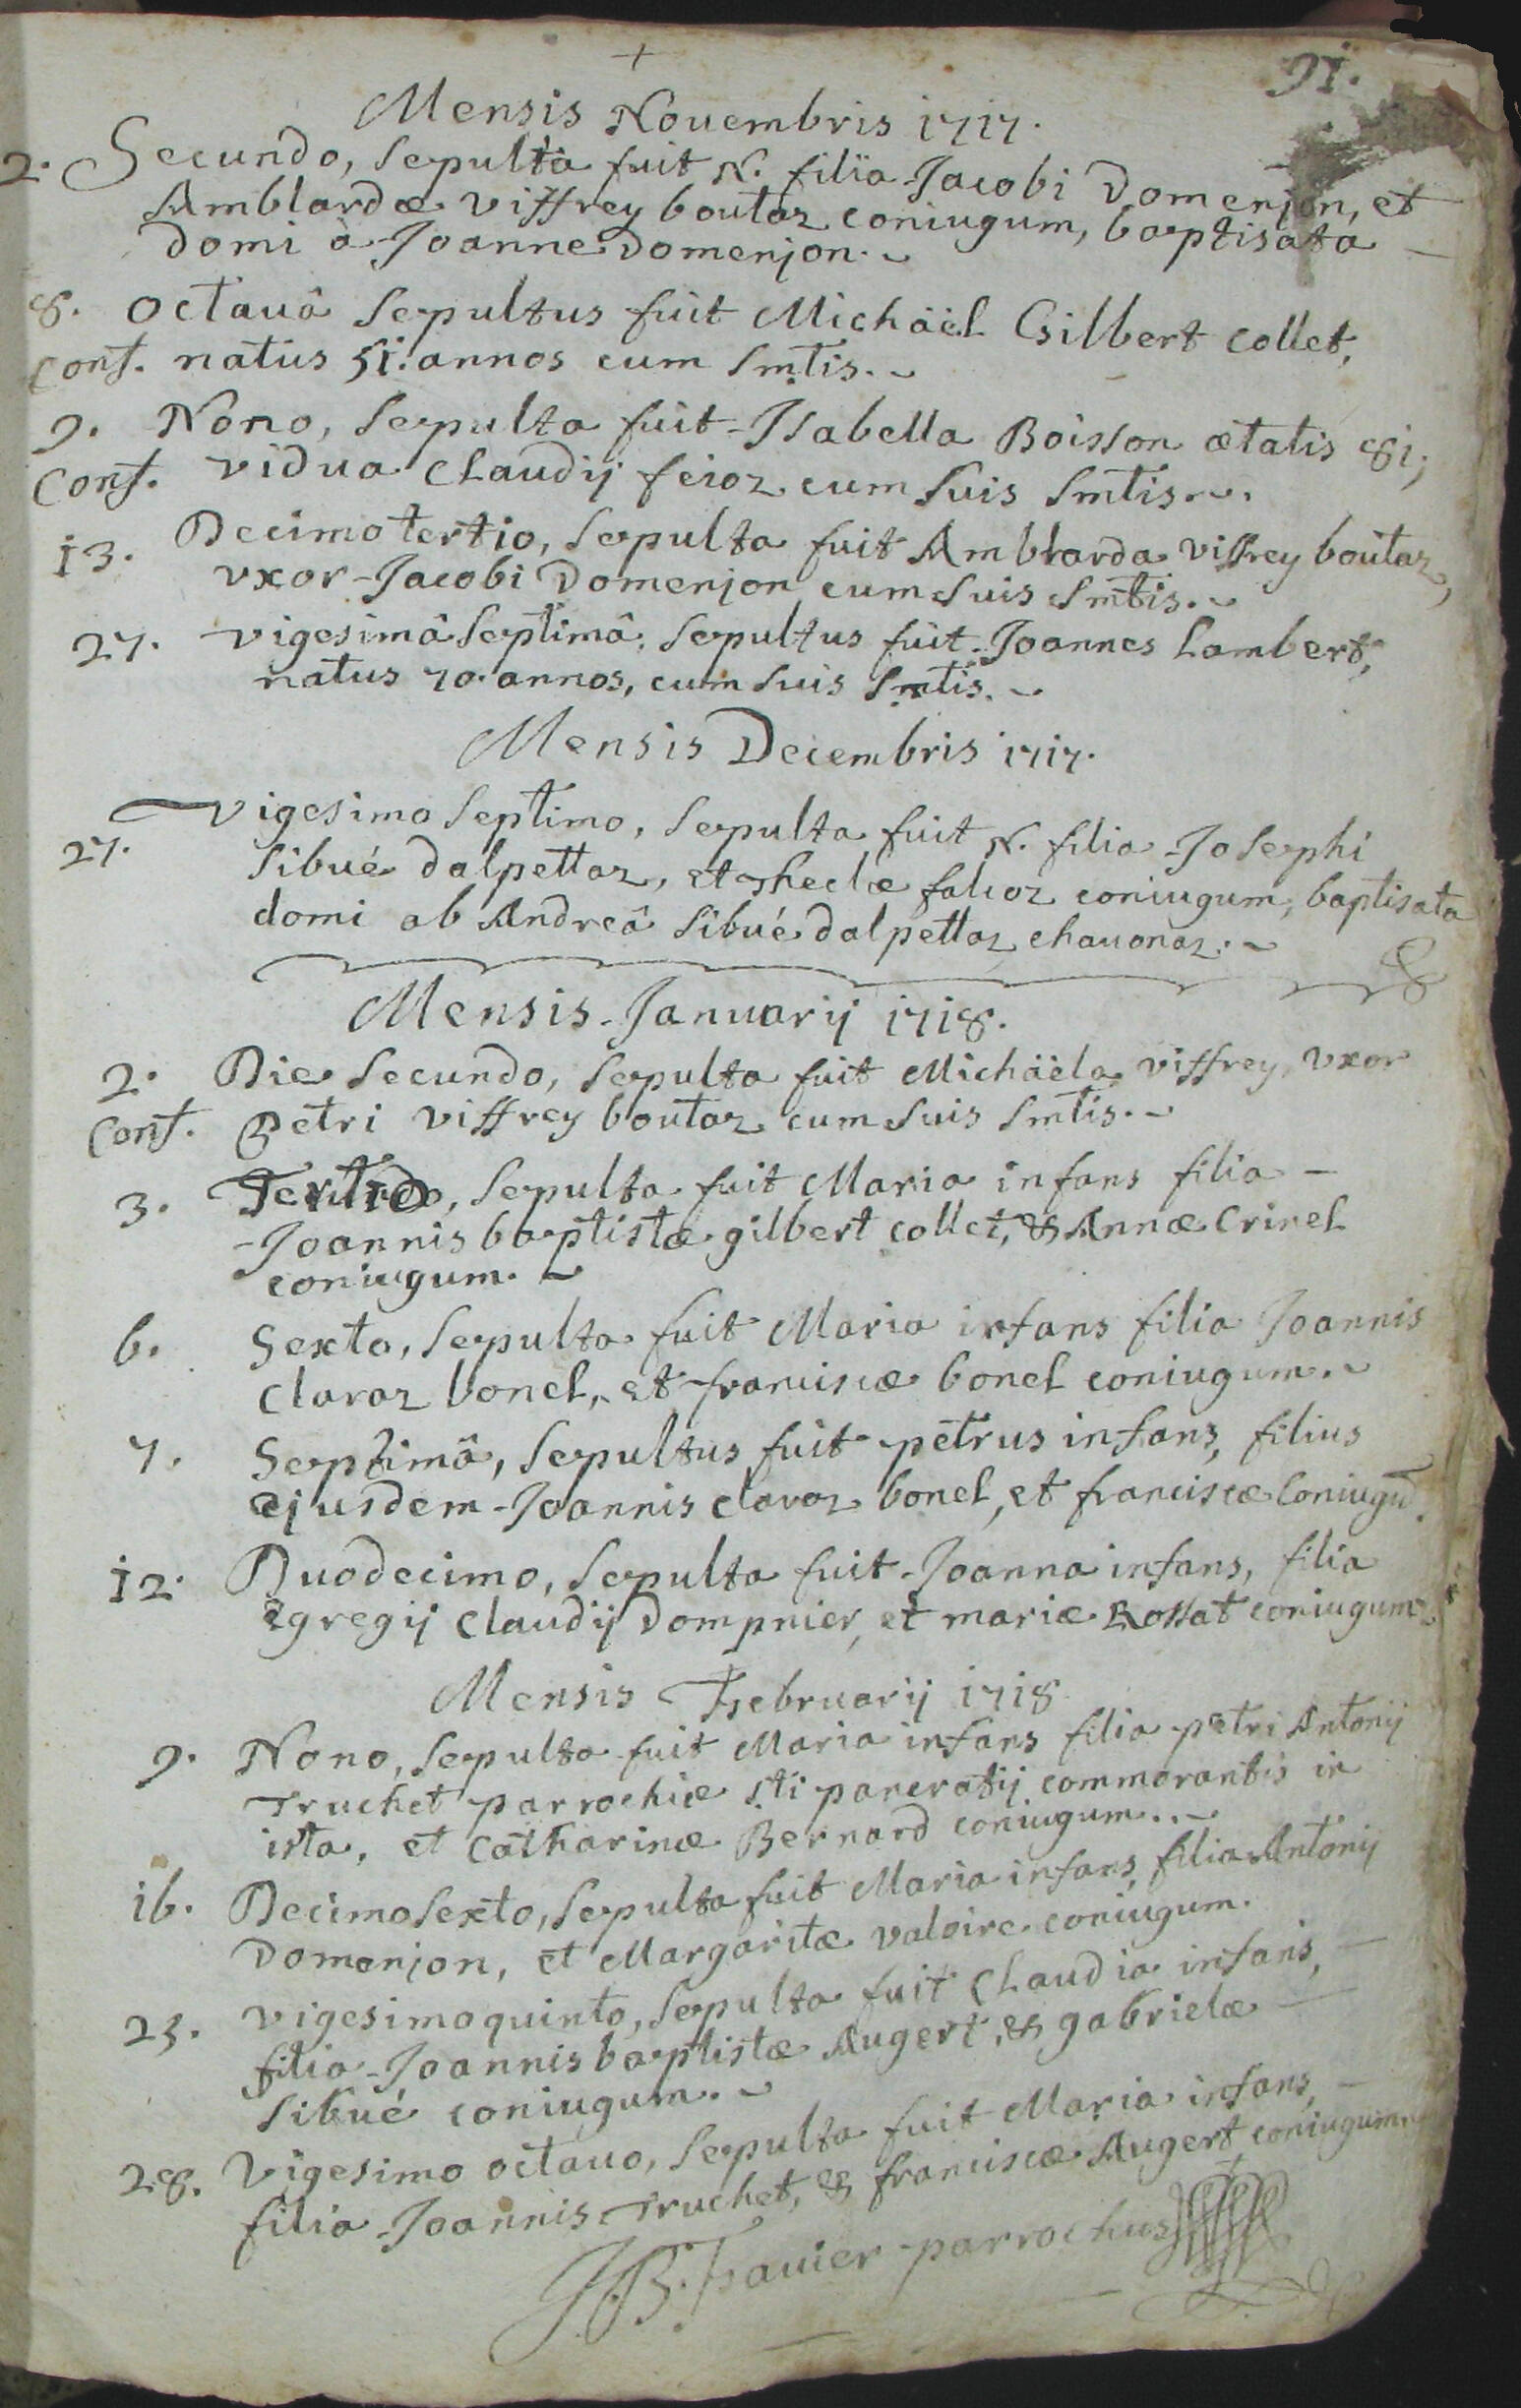 +
91.
Mensis Nouembris 1717.
2. Secundo, sepulta fuit N. filia Jacobi Domenjon, et
Amblardæ viffrey boutaz coniugum, baptisata
domi à Joanne Domenjon.
8. Octauâ sepultus fuit Michäel Gilbert collet,
Conf. natus 51. annos cum smtis.
9. Nono, sepulta fuit Isabella Boisson ætatis 81;
Conf. vidua Claudij feioz cum suis smtis.
13. Decimo tertio, sepulta fuit Amblarda viffrey boutaz,
vxor Jacobi Domenjon cum suis smtis.
27. vigesimâ septimâ, sepultus fuit Joannes Lambert,
natus 70. annos, cum suis smtis.
Mensis Decembris 1717.
27. vigesimo septimo, sepulta fuit N. filia Josephi
Sibué dalpettaz, et Theclæ falcoz coniugum, baptisata
domi ab Andreâ Sibué dalpettaz chauonaz.
Mensis Januarij 1718.
2. Die secundo, sepulta fuit Michäela viffrey, vxor
Conf. Petri viffrey boutaz cum suis smtis.
3. Tertio, sepulta fuit Maria infans filia
Joannis baptistæ gilbert collet, & Annæ Crinel
coniugum.
6. Sexto, sepulta fuit Maria infans filia Joannis
Claraz bonel, et franciscæ bonel coniugum.
7. Septimâ, sepultus fuit petrus infans, filius
ejusdem Joannis claraz bonel, et franciscæ Coniugū.
12. Duodecimo, sepulta fuit Joanna infans, filia
Egregij Claudij Dompnier, et mariæ Rossat coniugum.
Mensis Februarij 1718
9. Nono, sepulta fuit Maria infans filia petri Antonij
Truchet parrochiæ sti pancratij commorantis in
ista, et Catharinæ Bernard coniugum.
16. Decimo sexto, sepulta fuit Maria infans, filia Antonij
Domenjon, et Margaritæ valoire coniugum.
25. vigesimo quinto, sepulta fuit Claudia infans,
filia Joannis baptistæ Augert, & gabrielæ
Sibué coniugum.
28. Vigesimo octauo, sepulta fuit Maria infans,
filia Joannis Truchet, & franciscæ Augert coniugum.
J B. Favier parrochus